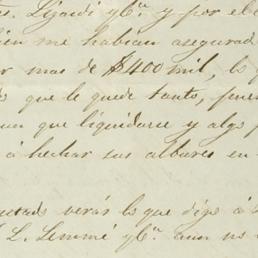 Lizardi y Ca. y por el c
ien me habian asegurad
r mas de $400 mil, lo
que le quede tanto, pues
que liquidarse y algo
á hechar sus albures en
verás lo que digo á
L. Lemmé y Ca. aun no